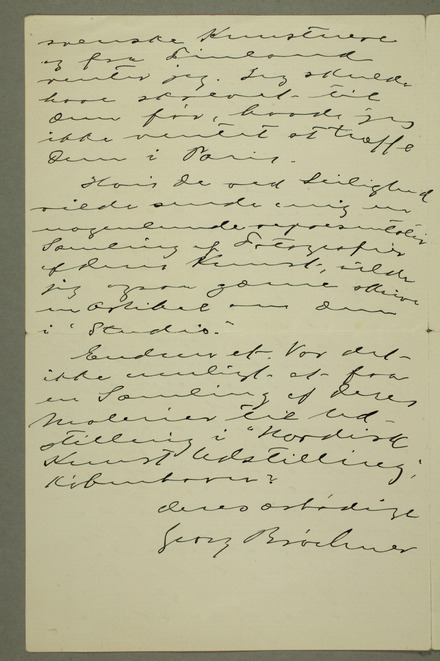 svenske Kunstnere
og fra Finland
venter jeg. Jeg skulde
have skrevet til
Dem før, havde jeg
ikke ventet at træffe
Dem i Paris.
Hvis De ved Leilighed
vilde sende mig en
nogenlunde repræsentativ
Samling af Fotografier
af deres Kunst, vilde
jeg ogsaa gærne skrive
en Artikel om Dem
i "Studio".
Endnu et. Var det
ikke muligt at faa
en Samling af Deres
Malerier til Ud-
stilling i "Nordisk
Kunst Udstilling",
København?
deres ærbødige
Georg Brøchner